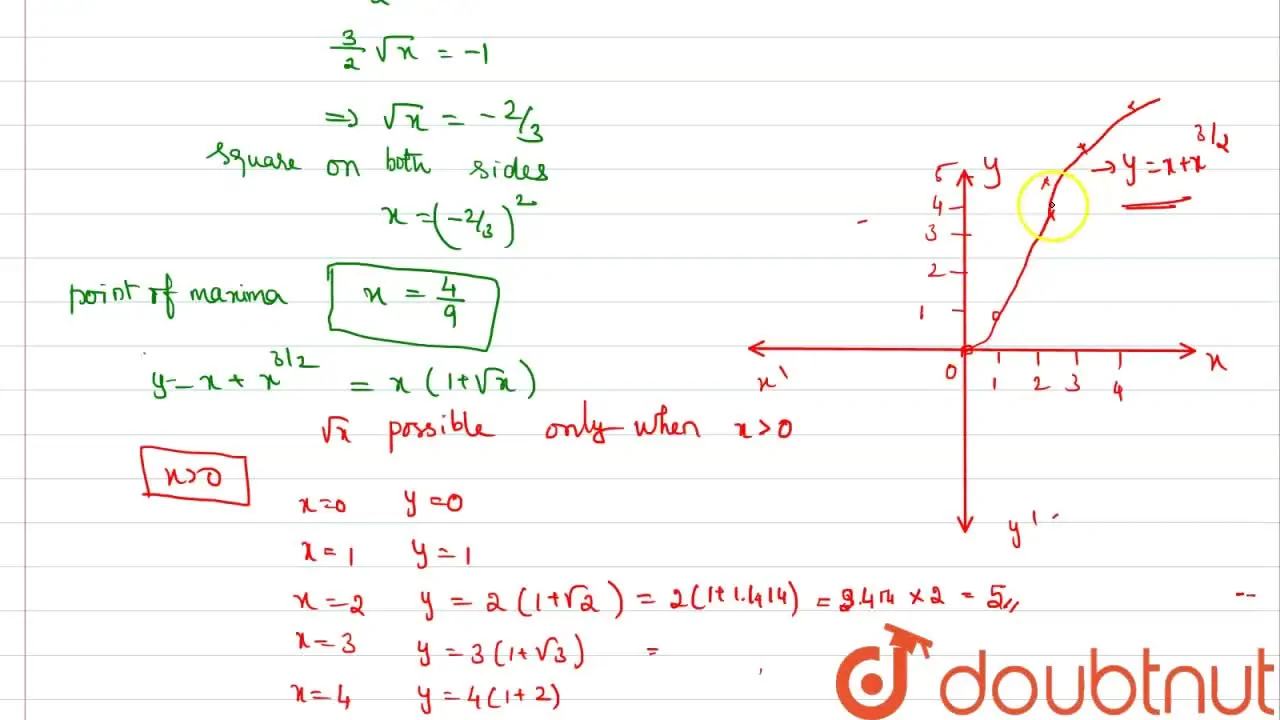 3/2 √x = -1
⇒ √x = -2/3
square on both sides
x = (-2/3)^2
point of maxima x = 4/9
y = x + x^3/2 = x (1+√x)
√x possible only when x>0
x>0
x=0 y=0
x=1 y=1
x=2 y = 2(1+√2) = 2(1+1.414) = 2.414 × 2 = 5,,
x=3 y = 3(1+√3) =
x=4 y = 4(1+2)
5 y → y = x+x^3/2
4
3
2
1
x' 0 1 2 3 4 x
y'
doubtnut